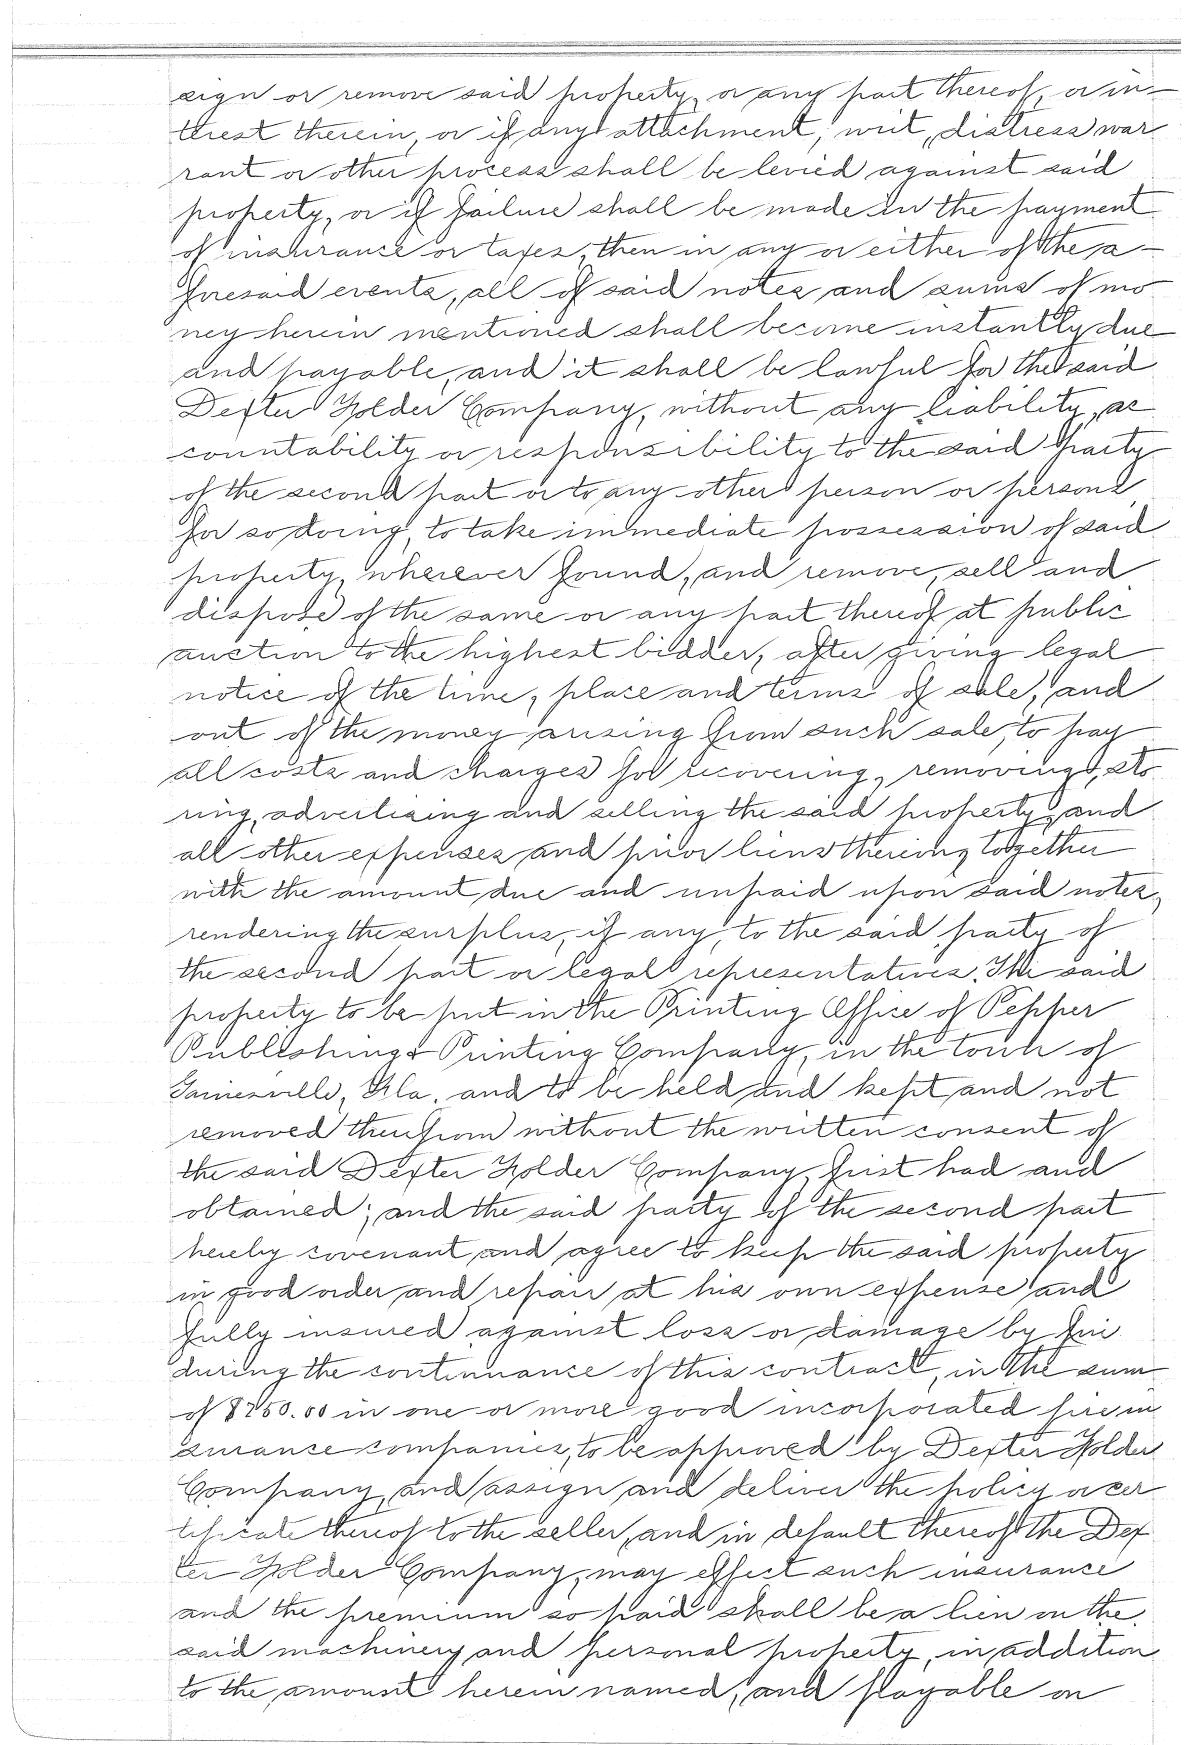 sign or remove said property, or any part thereof, or in-
terest therein, or if any attachment, writ, distress war
rant or other process shall be levied against said
property, or if failure shall be made in the payment
of insurance or taxes, then in any or either of the a-
foresaid events, all of said notes and sums of mo
ney herein mentioned shall become instantly due
and payable, and it shall be lawful for the said
Dexter Folder Company, without any liability, ac
countability or responsibility to the said party
of the second part or to any other person or persons
for so doing, to take immediate possession of said
property, wherever found, and remove, sell and
dispose of the same or any part thereof at public
auction to the highest bidder, after giving legal
notice of the time, place and terms of sale, and
out of the money arising from such sale, to pay
all costs and charges for recovering, removing, sto
ring, advertising and selling the said property, and
all other expenses and prior liens thereon, together
with the amount due and unpaid upon said notes,
rendering the surplus, if any, to the said party of
the second part or legal representatives. The said
property to be put in the Printing Office of Pepper
Publishing & Printing Company, in the town of
Gainesville, Fla. and to be held and kept and not
removed therefrom without the written consent of
the said Dexter Folder Company, first had and
obtained; and the said party of the second part
hereby covenant and agree to keep the said property
in good order and repair at his own expense and
fully insured against loss or damage by fire
during the continuance of this contract, in the sum
of $750.00 in one or more good incorporated fire in
surance companies, to be approved by Dexter Folder
Company, and assign and deliver the policy or cer
tificate thereof to the seller, and in default thereof the Dex
ter Folder Company, may effect such insurance
and the premium so paid shall be a lien on the
said machinery and personal property, in addition
to the amount herein named, and payable on